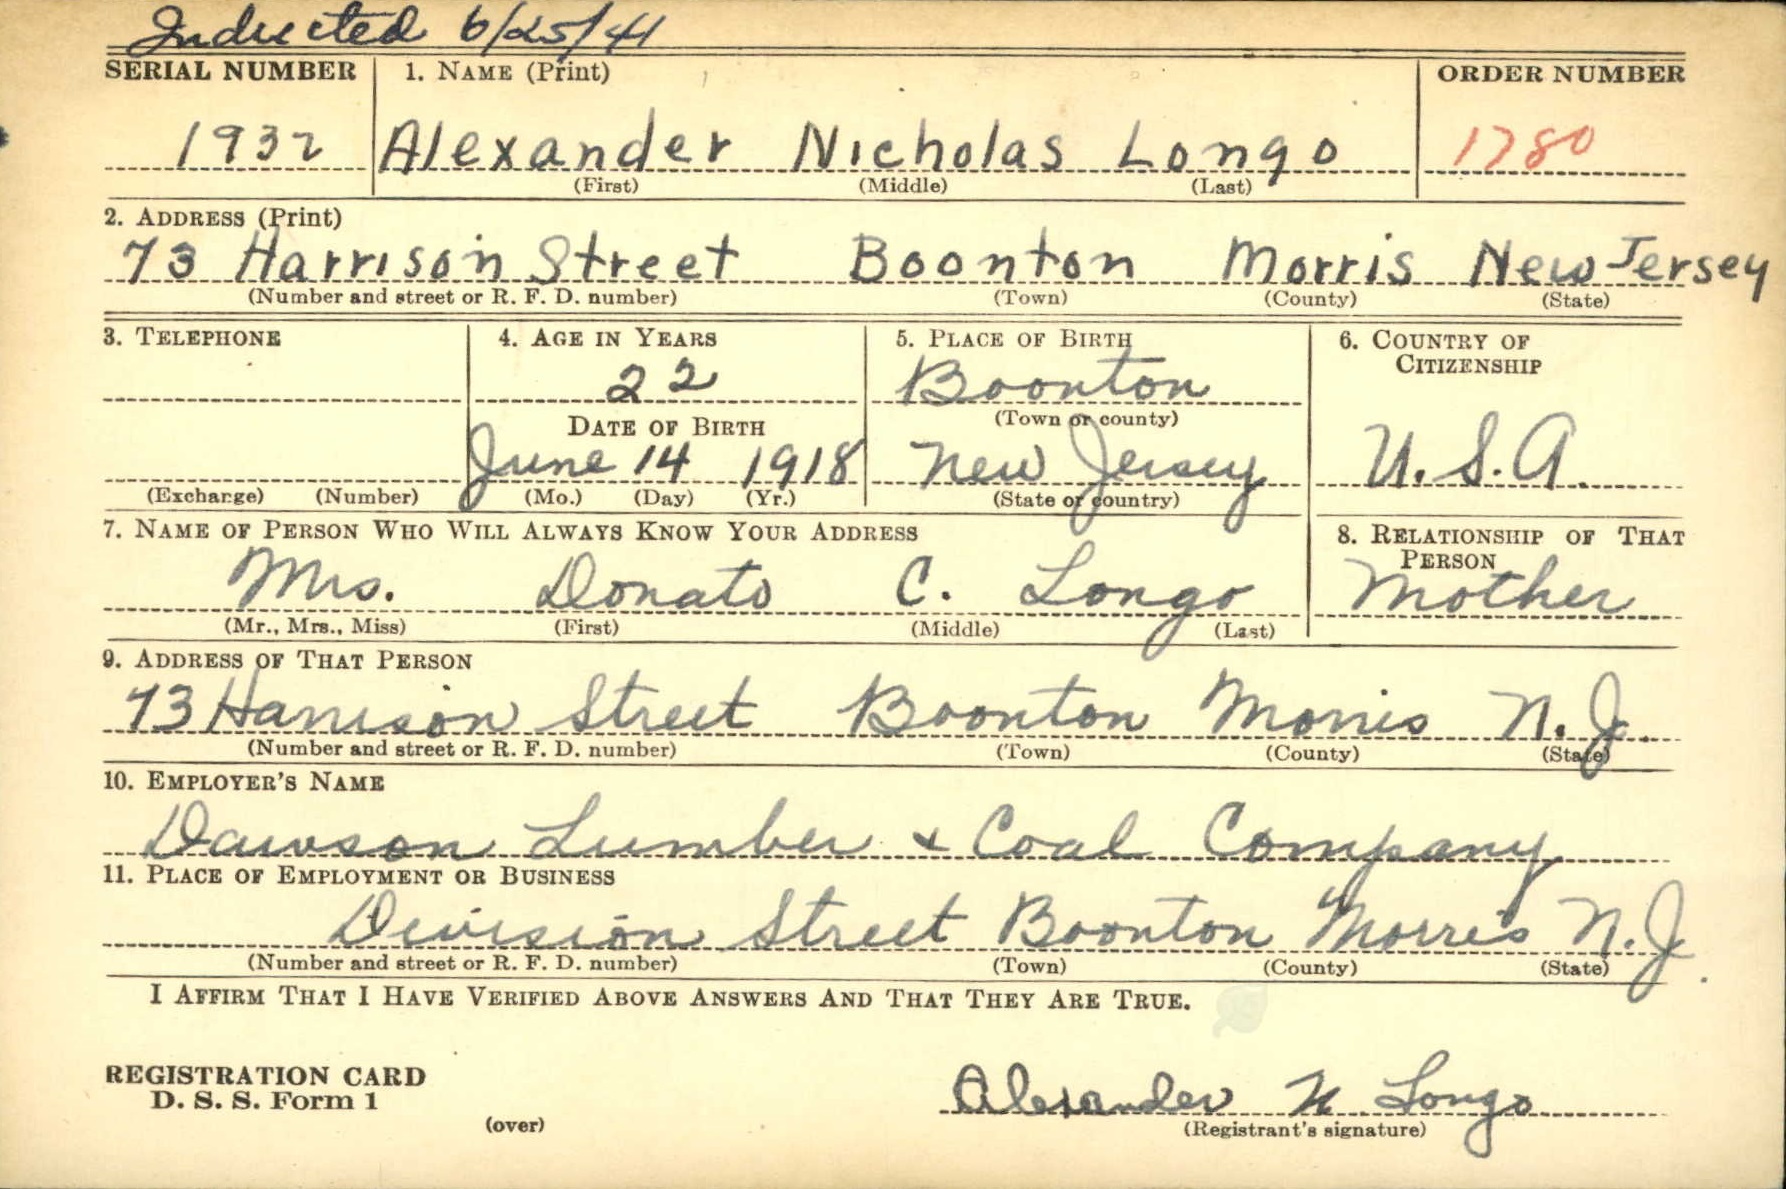 Inducted 6/25/41
SERIAL NUMBER 1. NAME (Print) ORDER NUMBER
1932 Alexander Nicholas Longo 1780
(First) (Middle) (Last)
2. ADDRESS (Print)
73 Harrison Street Boonton Morris New Jersey
(Number and street or R. F. D. number) (Town) (County) (State)
3. TELEPHONE 4. AGE IN YEARS 5. PLACE OF BIRTH 6. COUNTRY OF CITIZENSHIP
22 Boonton
DATE OF BIRTH (Town or county)
June 14 1918 New Jersey U.S.A.
(Exchange) (Number) (Mo.) (Day) (Yr.) (State or country)
7. NAME OF PERSON WHO WILL ALWAYS KNOW YOUR ADDRESS 8. RELATIONSHIP OF THAT PERSON
Mrs. Donato C. Longo Mother
(Mr., Mrs., Miss) (First) (Middle) (Last)
9. ADDRESS OF THAT PERSON
73 Harrison Street Boonton Morris N.J.
(Number and street or R. F. D. number) (Town) (County) (State)
10. EMPLOYER'S NAME
Dawson Lumber + Coal Company
11. PLACE OF EMPLOYMENT OR BUSINESS
Division Street Boonton Morris N.J.
(Number and street or R. F. D. number) (Town) (County) (State)
I AFFIRM THAT I HAVE VERIFIED ABOVE ANSWERS AND THAT THEY ARE TRUE.
REGISTRATION CARD
D. S. S. Form 1 Alexander N. Longo
(over) (Registrant's signature)